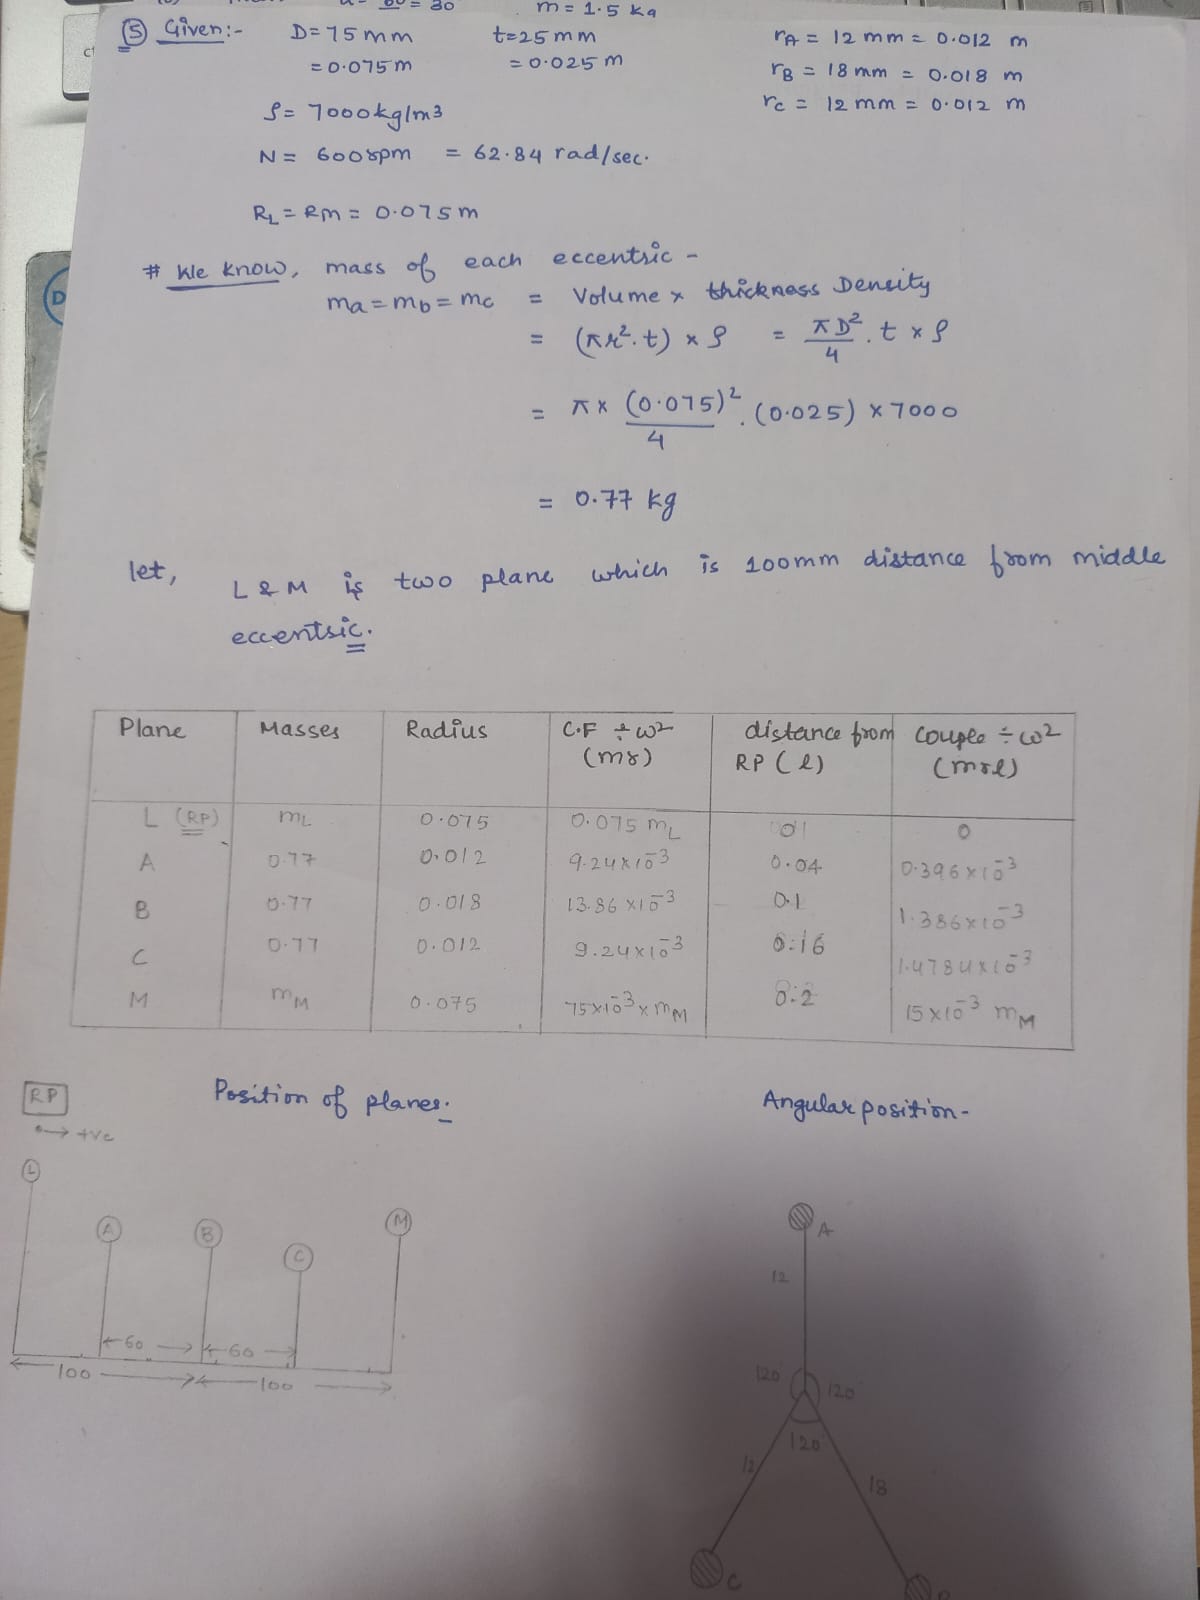 = 30
m = 1.5 kg
⑤ Given:- D= 75mm t=25mm rA = 12 mm = 0.012 m
= 0.075m = 0.025 m rB = 18mm = 0.018 m
rc = 12 mm = 0.012 m
ρ= 7000kg/m3
N = 600rpm = 62.84 rad/sec.
RL = Rm = 0.075m
# We know, mass of each eccentric -
ma = mb = mc = Volume x thickness Density
= (πr². t) x ρ = πD²/4 . t x ρ
= π x (0.075)²/4 . (0.025) x 7000
= 0.77 kg
let, L & M is two plane which is 100mm distance from middle
eccentric.
Plane Masses Radius C.F ÷ ω² (mr) distance from RP (l) Couple ÷ ω² (mrl)
L (RP) mL 0.075 0.075 mL 0
A 0.77 0.012 9.24x10-3 0.04 0.396x10-3
B 0.77 0.018 13.86 x10-3 0.1 1.386x10-3
C 0.77 0.012 9.24x10-3 0.16 1.4784x10-3
M mM 0.075 75x10-3 x mM 0.2 15x10-3 mM
RP Position of planes. Angular position-
→ +ve
L
A B C M
A
12
60 60
100 100
120 120
120
12 18
C
D